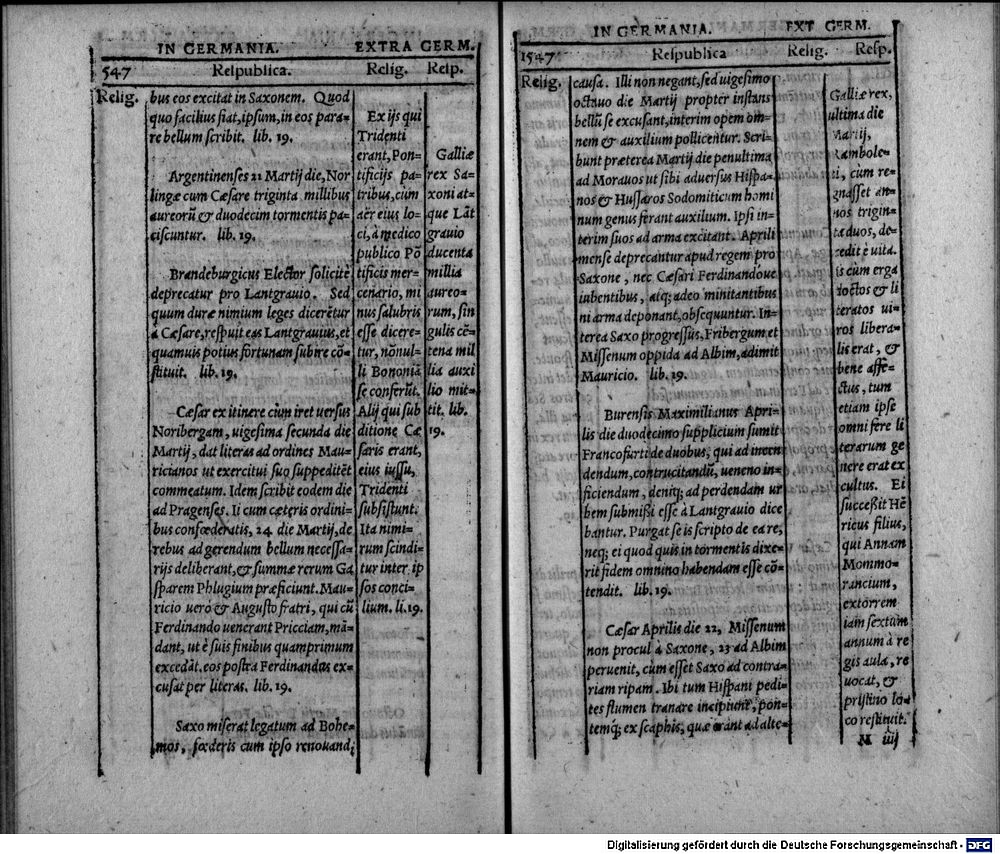 IN GERMANIA. EXTRA GERM.
547 Respublica. Relig. Resp.
Relig.
bus eos excitat in Saxonem. Quod
quo facilius fiat, ipsum, in eos para=
re bellum scribit. lib. 19.
Argentinenses 21 Martij die, Nor
lingæ cum Cæsare triginta millibus
aureorũ & duodecim tormentis pa=
ciscuntur. lib. 19.
Brandeburgicus Elector solicitè
deprecatur pro Lantgrauio. Sed
quum duræ nimium leges diceretur
à Cæsare, respuit eas Lantgrauius, et
quamuis potius fortunam subire cõ=
stituit. lib. 19.
Cæsar ex itinere cùm iret uersus
Noribergam, uigesima secunda die
Martij, dat literas ad ordines Mau=
ricianos ut exercitui suo suppeditẽt
commeatum. Idem scribit eodem die
ad Pragenses. Ii cum cæteris ordini=
bus confœderatis, 24 die Martij, de
rebus ad gerendum bellum necessa=
rijs deliberant, & summæ rerum Ga
sparem Phlugium præficiunt. Mau=
ricio uero & Augusto fratri, qui cũ
Ferdinando uenerant Pricciam, mã=
dant, ut è suis finibus quamprimum
excedãt. eos postea Ferdinandus ex=
cusat per literas. lib. 19.
Saxo miserat legatum ad Bohe=
mos, fœderis cum ipso renouandi
Ex ijs qui
Tridenti
erant, Pon=
tificijs pa=
tribus, cùm
aër eius lo=
ci, à medico
publico Põ
tificis mer=
cenario, mi
nus salubris
esse dicere=
tur, nõnul=
li Bononiã
se conferũt.
Alij qui sub
ditione Cæ
saris erant,
eius iussu,
Tridenti
subsistunt.
Ita nimi=
rum scindi=
tur inter ip
sos conci=
lium. li. 19.
Galliæ
rex Sa=
xoni at=
que Lãt
grauio
ducenta
millia
aureo=
rum, sin
gulis cẽ=
tena mil
lia auxi
lio mit=
tit. lib.
19.
IN GERMANIA. EXT GERM.
1547 Respublica Relig. Resp.
Relig.
causa. Illi non negant, sed uigesimo
octauo die Martij propter instans
bellũ se excusant, interim opem om=
nem & auxilium pollicentur. Scri=
bunt præterea Martij die penultima
ad Morauos ut sibi aduersus Hispa=
nos & Hussaros Sodomiticum homi
num genus ferant auxilium. Ipsi in=
terim suos ad arma excitant. Aprili
mense deprecantur apud regem pro
Saxone, nec Cæsari Ferdinandoue
iubentibus, atq; adeo minitantibus
ni arma deponant, obsequuntur. In=
terea Saxo progressus, Fribergum et
Missenum oppida ad Albim, adimit
Mauricio. lib. 19.
Burensis Maximilianus Apri=
lis die duodecimo supplicium sumit
Francofurti de duobus, qui ad incen
dendum, contrucitandũ, ueneno in=
ficiendum, deniq; ad perdendam ur
bem submissi esse à Lantgrauio dice
bantur. Purgat se is scripto de ea re,
neq; ei quod quis in tormentis dixe=
rit fidem omnino habendam esse cõ=
tendit. lib. 19.
Cæsar Aprilis die 22, Missenum
non procul à Saxone, 23 ad Albim
peruenit, cum esset Saxo ad contra=
riam ripam. Ibi tum Hispani pedi=
tes flumen tranare incipiunt, pon=
temq; ex scaphis, quæ erant ad alte=
Galliæ rex,
ultima die
Martij,
Rambole=
ti, cum re=
gnasset an=
nos trigin=
ta duos, de=
cedit è uita.
is cum erga
doctos & li
teratos ui=
ros libera=
lis erat, &
bene affe=
ctus, tum
etiam ipse
omni fere li
terarum ge
nere erat ex
cultus. Ei
successit Hẽ
ricus filius,
qui Annam
Mommo=
rancium,
extorrem
iam sextum
annum à re
gis aula, re
uocat, &
pristino lo=
co restituit.
M iiij
Digitalisierung gefördert durch die Deutsche Forschungsgemeinschaft - DFG